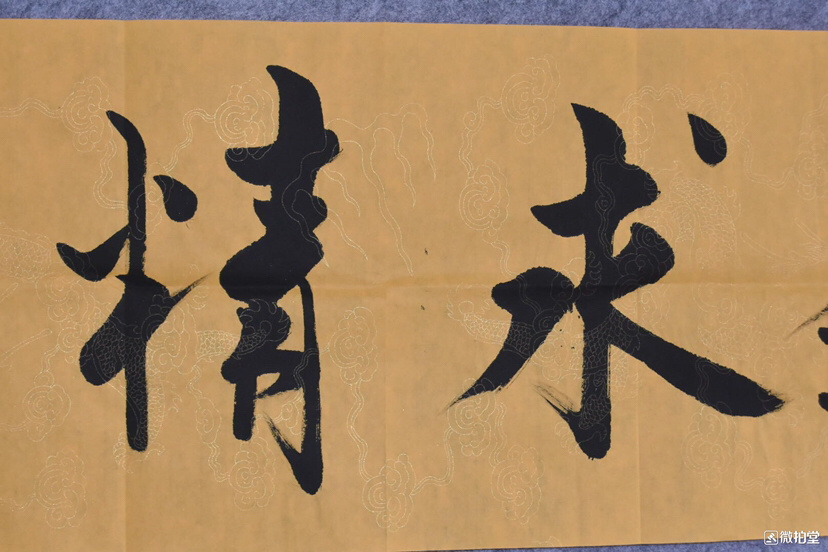 精求
微拍堂